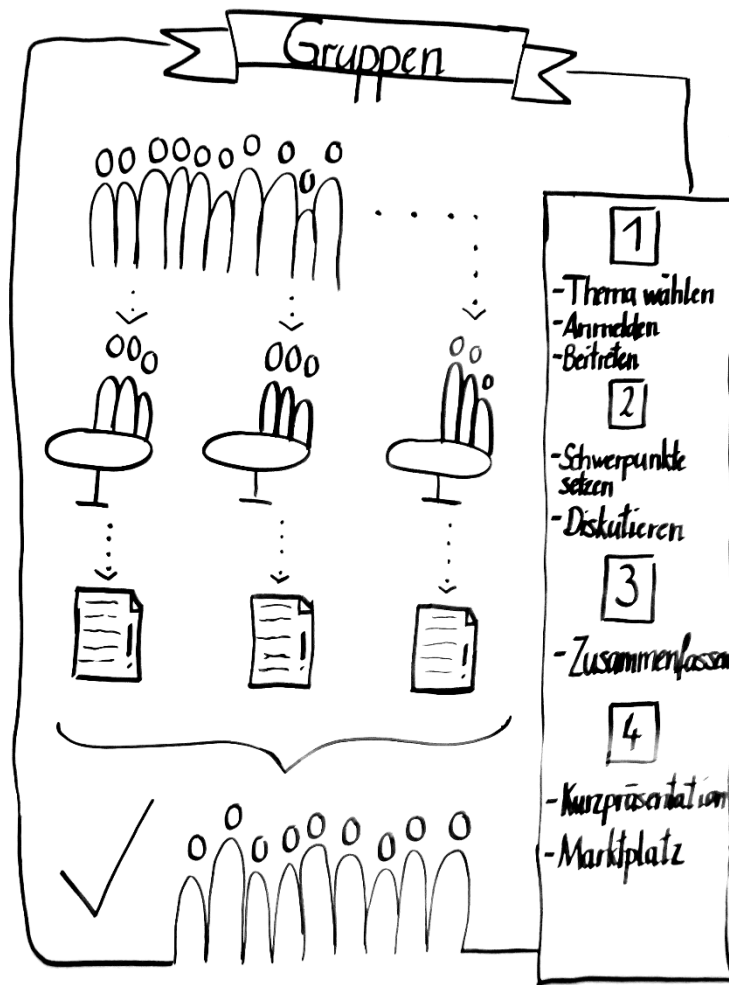 Gruppen
1
- Thema wählen
- Anmelden
- Beitreten
2
- Schwerpunkte
setzen
- Diskutieren
3
- Zusammenfassen
4
- Kurzpräsentation
- Marktplatz